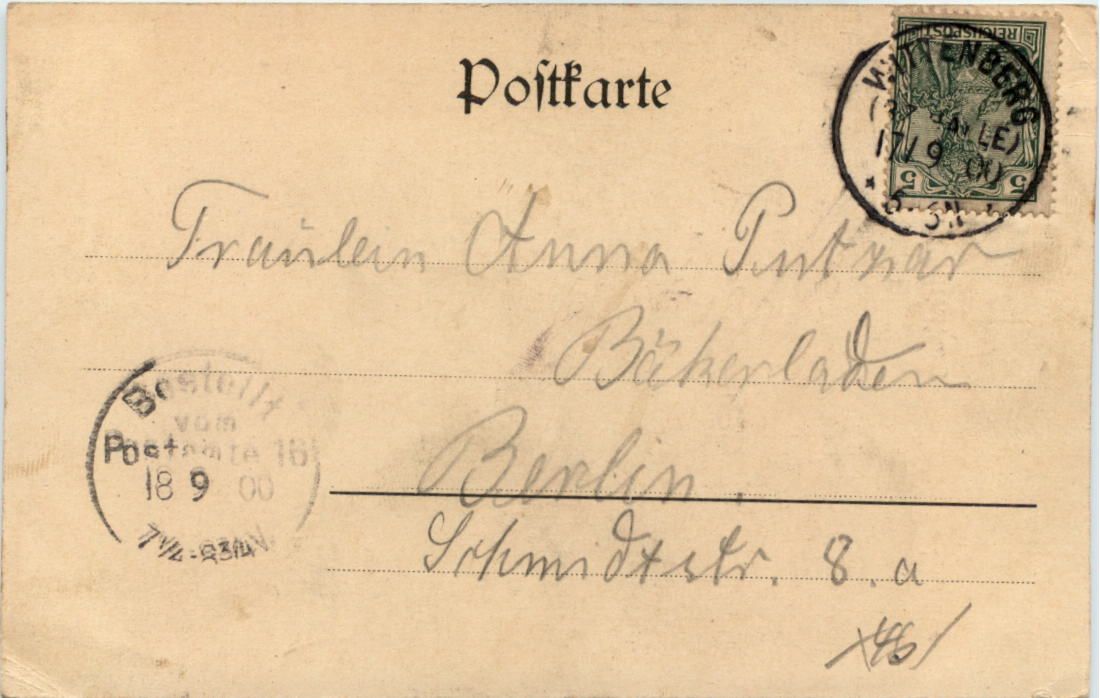 Postkarte
REICHSPOST
5 5
WITTENBERG
(BZ. HALLE)
17/9 00
* 5-6N *
Fräulein Anna Putnar
Bäkerladen
Berlin.
Schmidtstr. 8. a
Bestellt
vom
Postamte 16
18 9 00
7 1/2-8 3/4 V.